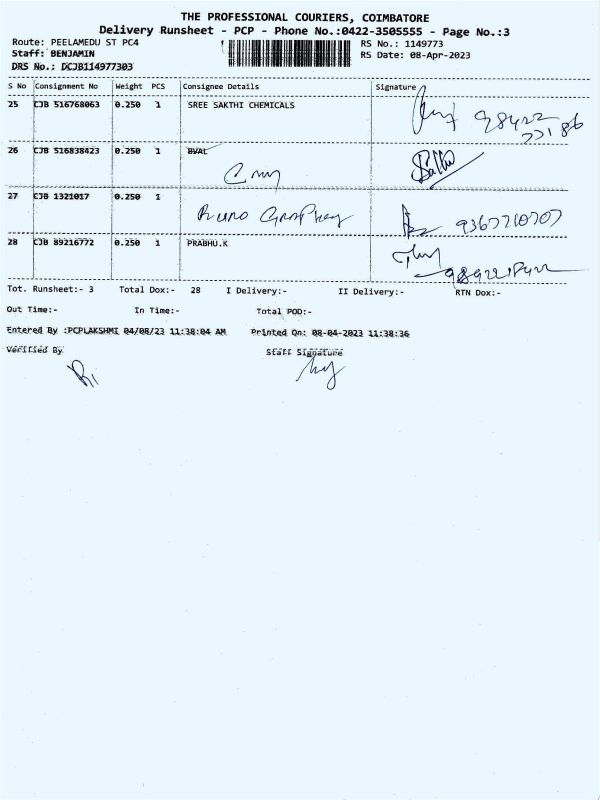 THE PROFESSIONAL COURIERS, COIMBATORE
Delivery Runsheet - PCP - Phone No.:0422-3505555 - Page No.:3
Route: PEELAMEDU ST PC4 RS No.: 1149773
Staff: BENJAMIN RS Date: 08-Apr-2023
DRS No.: DCJB114977303
S No Consignment No Weight PCS Consignee Details Signature
25 CJB 516768063 0.250 1 SREE SAKTHI CHEMICALS 98422
22186
26 CJB 516838423 0.250 1 BVAL
27 CJB 1321017 0.250 1
9367210707
28 CJB 89216772 0.250 1 PRABHU.K
Tot. Runsheet:- 3 Total Dox:- 28 I Delivery:- II Delivery:- RTN Dox:-
Out Time:- In Time:- Total POD:-
Entered By :PCPLAKSHMI 04/08/23 11:38:04 AM Printed On: 08-04-2023 11:38:36
Verified By Staff Signature